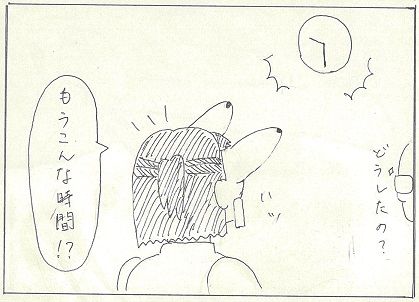 どうしたの?
もうこんな時間!?